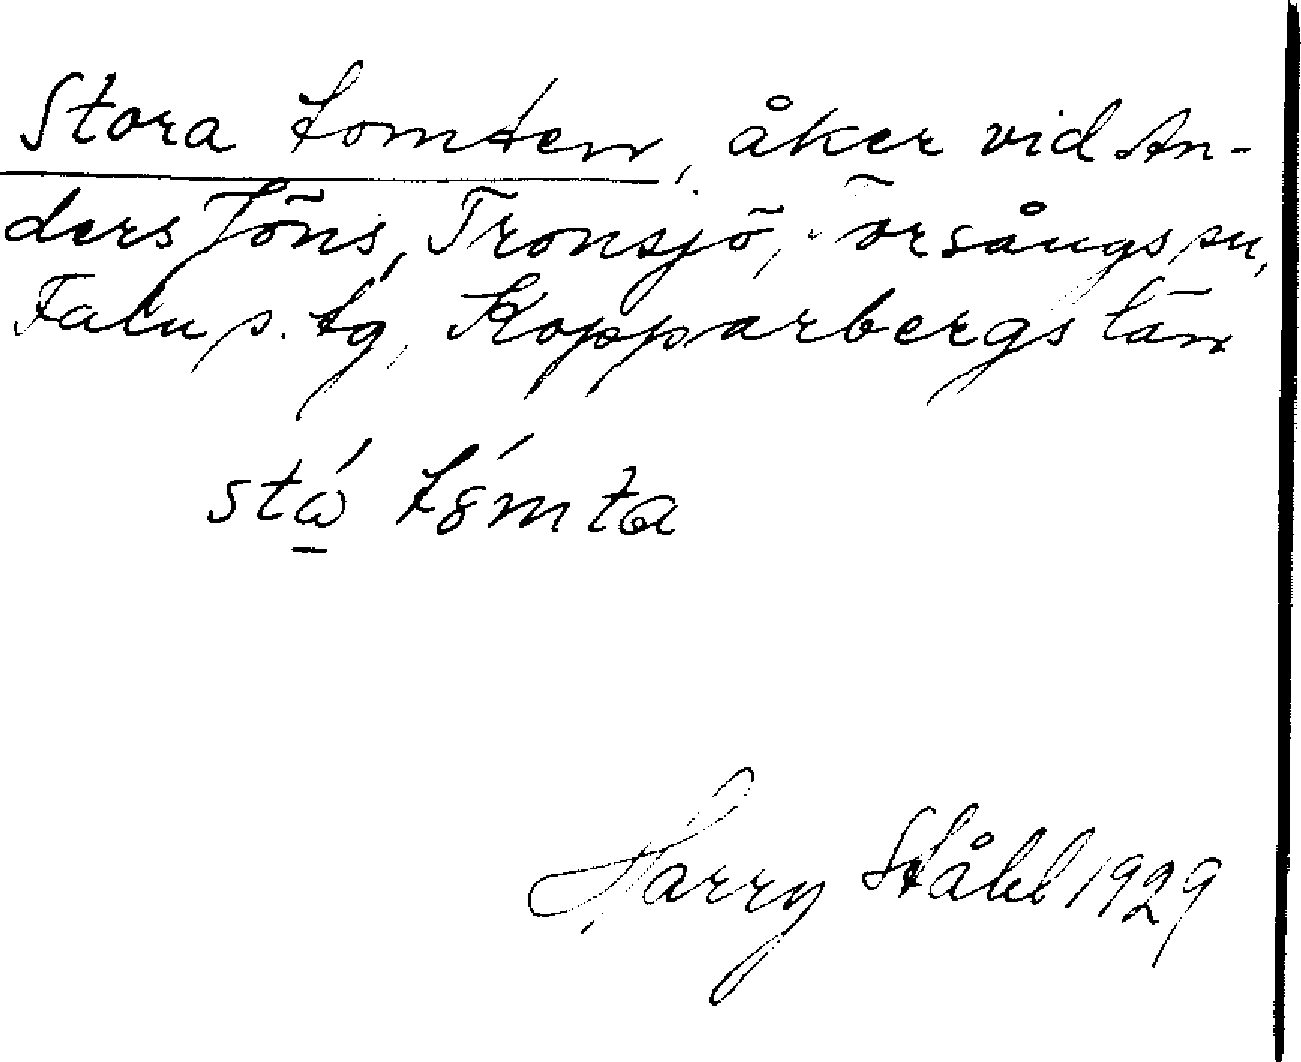 Stora tomten, åker vid An-
ders Jöns, Tronsjö, Örsångs sn,
Falu s. tg, Kopparbergs län
stɷ́ tómta
Harry Ståhl 1929